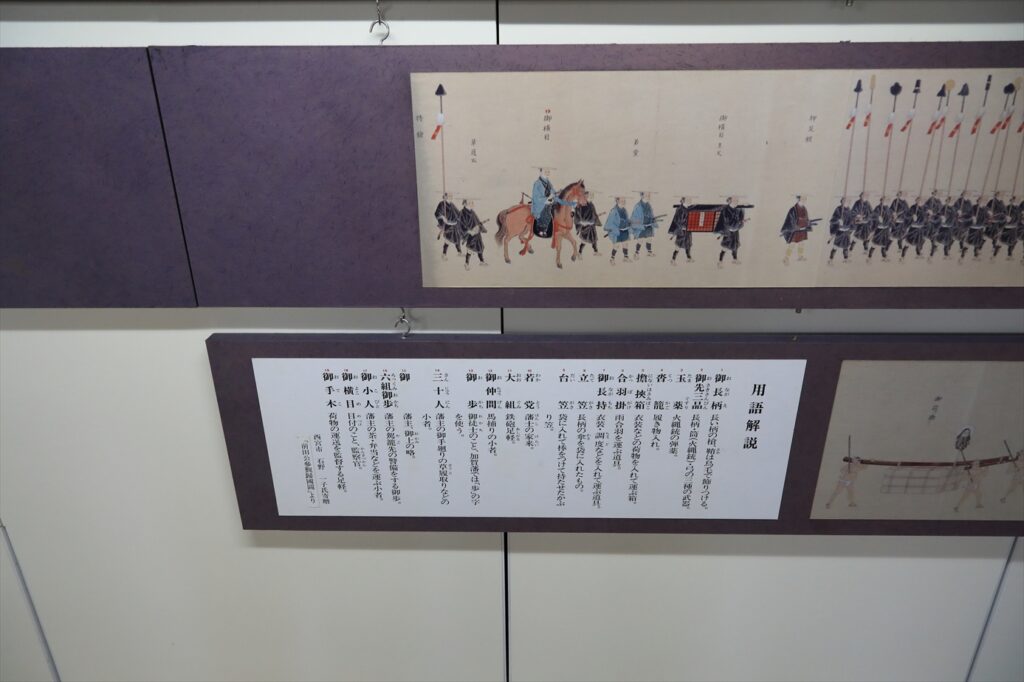 押足軽
御横目
持鎗
用語解説
御長柄 長い柄の槍。鞘は鳥毛で飾りつける。
御先三品 長柄・筒(火縄銃)・弓の三種の武器。
玉薬 火縄銃の弾薬。
沓籠 履き物入れ。
擔挾箱 衣装などの荷物を入れて運ぶ箱。
合羽掛 雨合羽を運ぶ道具。
御長持 衣装・調度などを入れて運ぶ道具。
立笠 長柄の傘を袋に入れたもの。
台笠 袋に入れて柄をつけて持たせたかぶ
り笠。
若党 藩士の家来。
大組 鉄砲足軽。
御仲間 馬捕りの小者。
御歩 御徒士のこと。加賀藩では「歩」の字
を使う。
三十人 藩主の御手廻りの草履取りなどの
小者。
御 藩主、御上の略。
六組御歩 藩主の駕籠先の警備をする御歩。
御小人 藩主の茶・弁当などを運ぶ小者。
御横目 目付のこと。監察官。
御手木 荷物の運送を監督する足軽。
西宮市 石野 一子氏寄贈